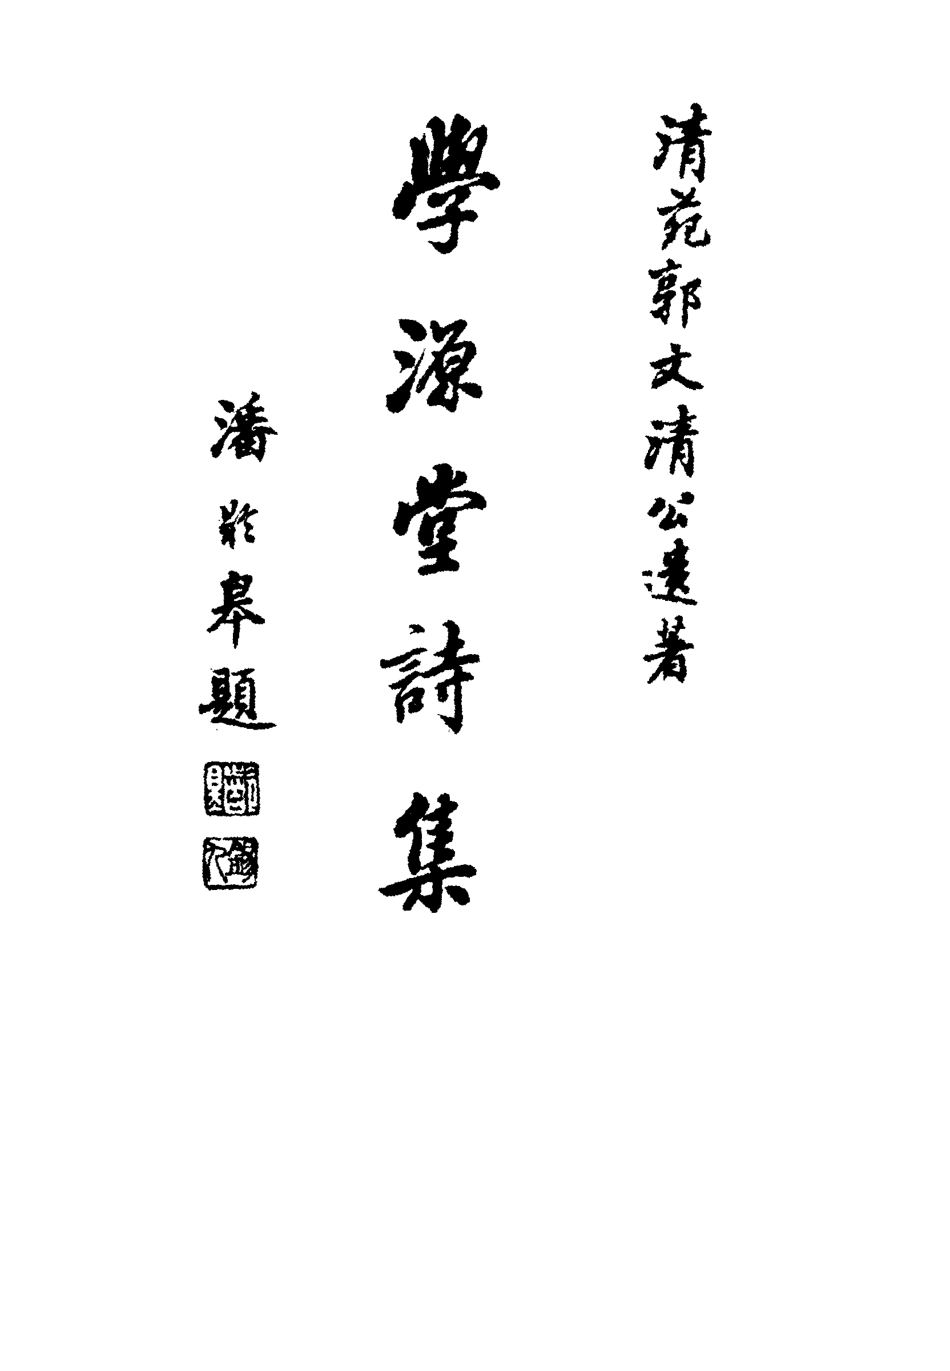 清苑郭文清公遺著
學源堂詩集
潘齡皋題
錫九